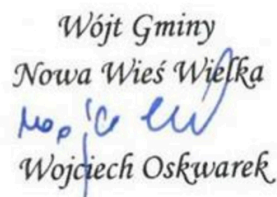 Wójt Gminy
Nowa Wieś Wielka
Wojciech Oskwarek